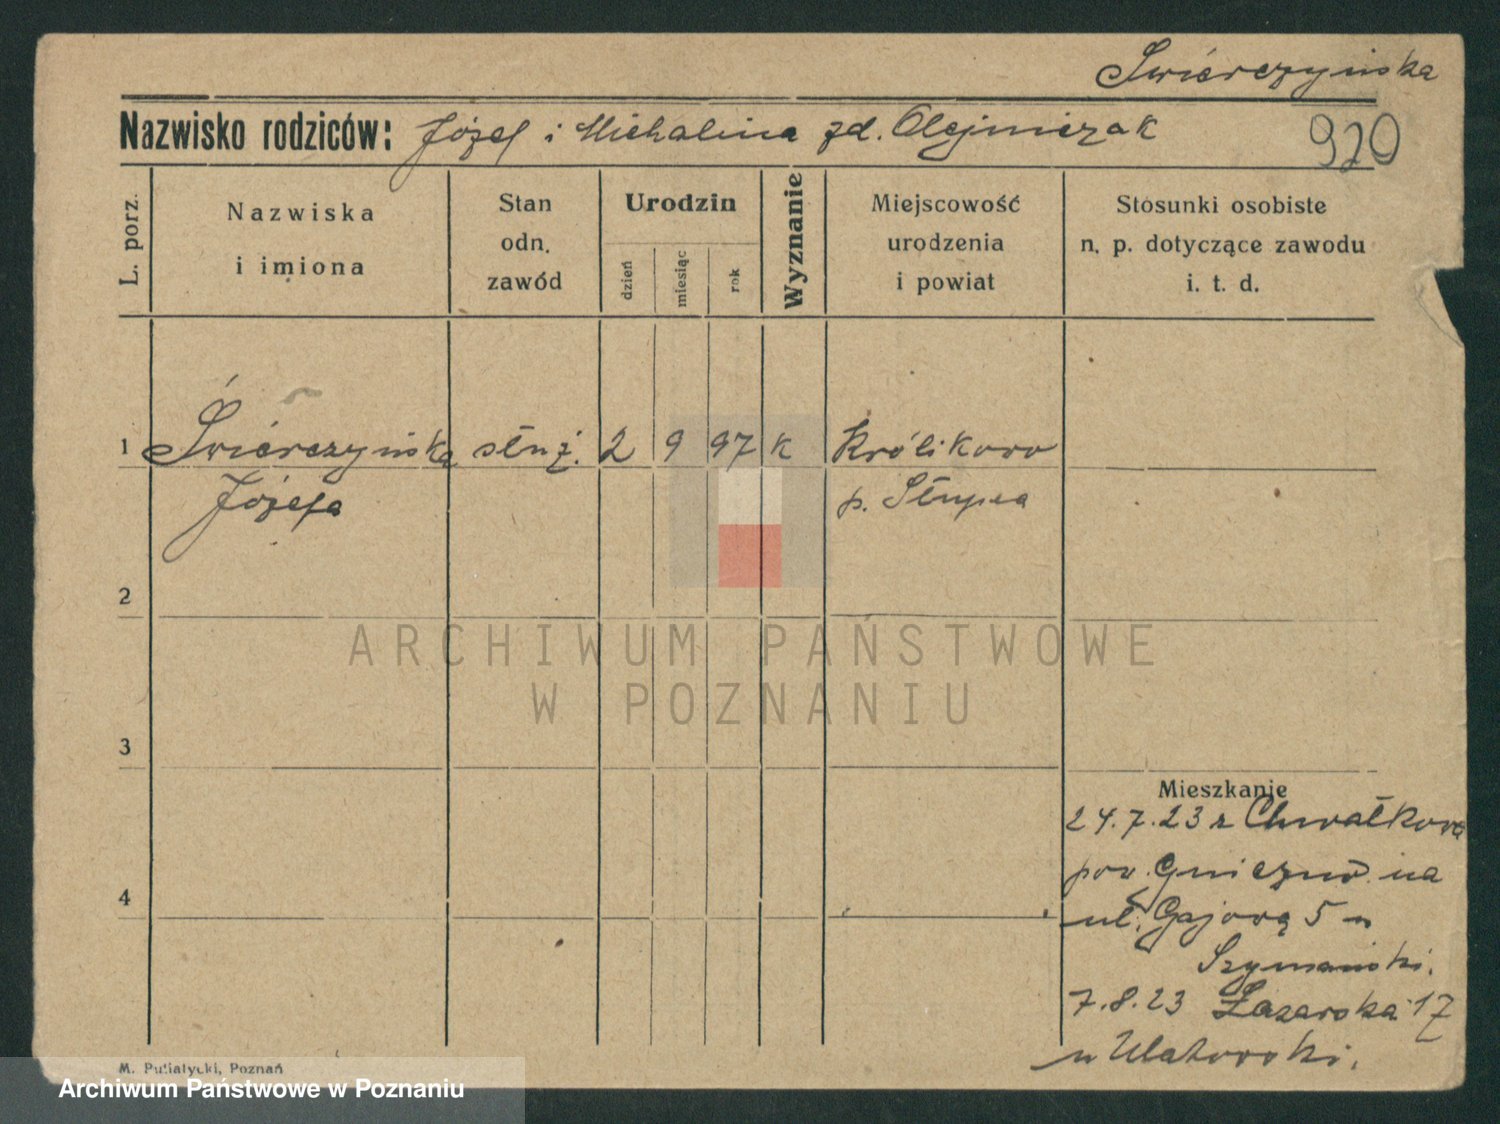 Świerczyńska
Nazwisko rodziców: Józef i Michalina zd. Olejniczak
920
L. porz.
Nazwiska
i imiona
Stan
odn.
zawód
Urodzin
dzień
miesiąc
rok
Wyznanie
Miejscowość
urodzenia
i powiat
Stosunki osobiste
n. p. dotyczące zawodu
i. t. d.
1 Świerczyńska służ. 2 9 97 k Królikowo
Józefa p. Słupca
2
ARCHIWUM PAŃSTWOWE
W POZNANIU
3
Mieszkanie
24.7.23 z Chwałkowa
pow. Gniezno na
4
ul. Gajową 5 u
Szymański.
7.8.23 Łazarska 17
u Ulatowski.
M. Putiatycki, Poznań
Archiwum Państwowe w Poznaniu